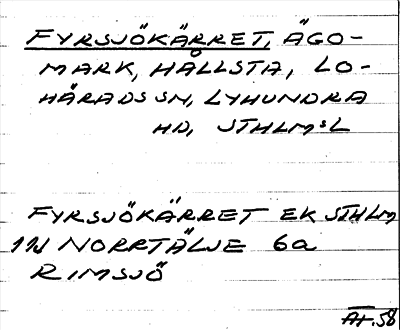 FYRSJÖKÄRRET, ÄGO-
MARK, HÅLLSTA, LO-
HÄRADS SN, LYHUNDRA
HD, STHLMS L
FYRSJÖKÄRRET EK STHLM
11J NORRTÄLJE 6a
RIMSJÖ
AT. 58